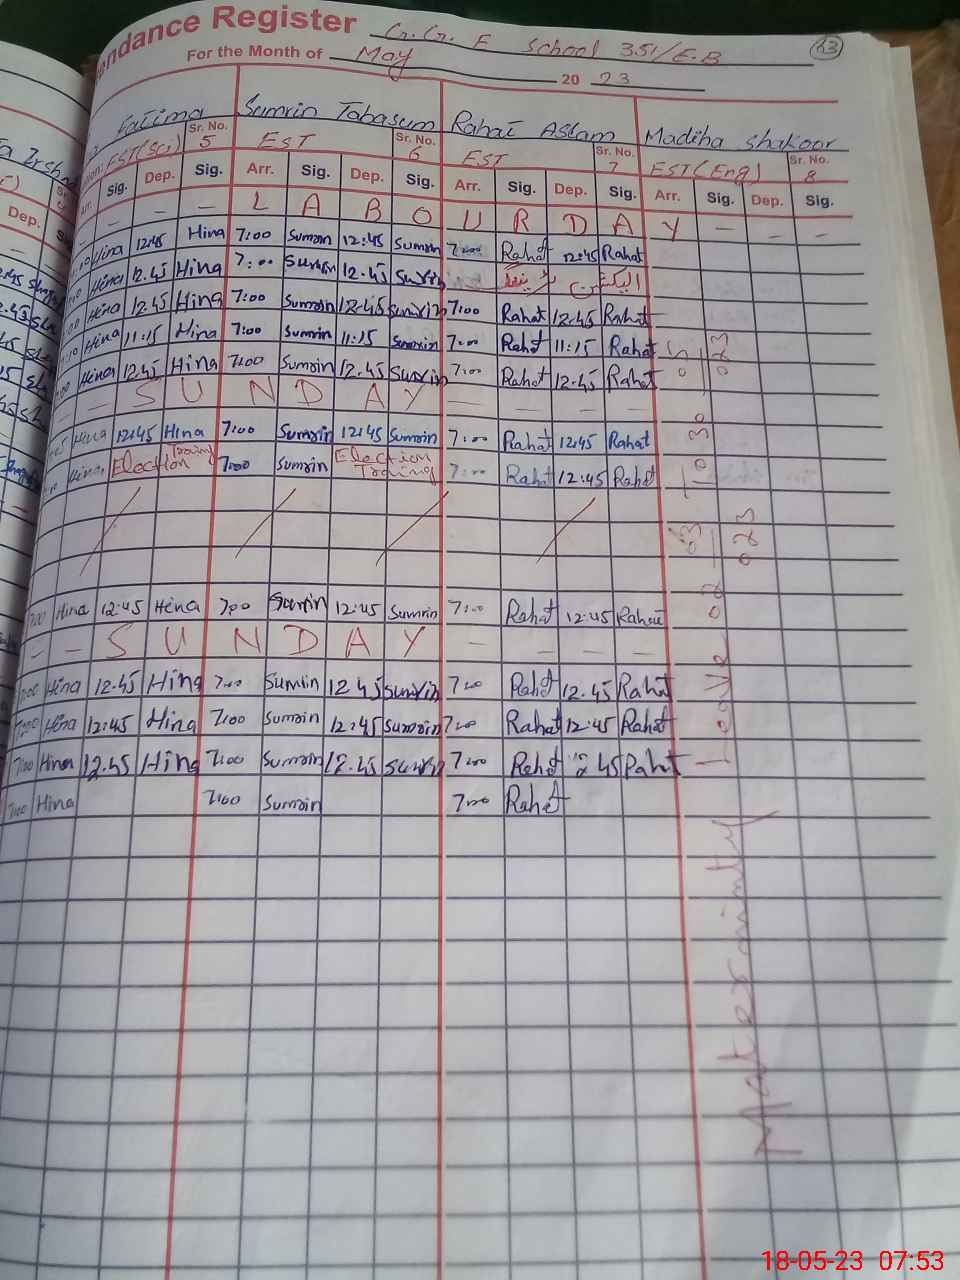 ndance Register G.G. E School 351/E.B 63
For the Month of May 20 23
Fatima Sumrin Tabasum Rahat Aslam Madiha Shakoor
EST(Sci) Sr. No. 5 EST Sr. No. 6 EST Sr. No. 7 EST(Eng) Sr. No. 8
Dep. Arr. Sig. Dep. Sig. Arr. Sig. Dep. Sig. Arr. Sig. Dep. Sig. Arr. Sig. Dep. Sig.
— — — L A B O U R D A Y — — —
Hina 12:45 Hina 7:00 Sumrin 12:45 Sumrin 7:00 Rahat 12:45 Rahat
Hina 12.45 Hina 7:00 Sumrin 12.45 Sumrin الیکشن ٹریننگ
Hina 12.45 Hina 7:00 Sumrin 12.45 Sumrin 7:00 Rahat 12.45 Rahat
Hina 11:15 Hina 7:00 Sumrin 11:15 Sumrin 7:00 Rahat 11:15 Rahat
Hina 12.45 Hina 7:00 Sumrin 12.45 Sumrin 7:00 Rahat 12.45 Rahat
— — S U N D A Y — — — —
Hina 12:45 Hina 7:00 Sumrin 12:45 Sumrin 7:00 Rahat 12:45 Rahat
Hina Election Traning 7:00 Sumrin Election Traning 7:00 Rahat 12:45 Rahat
7:00 Hina 12:45 Hina 7:00 Sumrin 12:45 Sumrin 7:00 Rahat 12:45 Rahat
— — S U N D A Y — — — —
7:00 Hina 12.45 Hina 7:00 Sumrin 12.45 Sumrin 7:00 Rahat 12.45 Rahat
7:00 Hina 12:45 Hina 7:00 Sumrin 12:45 Sumrin 7:00 Rahat 12:45 Rahat
7:00 Hina 12.45 Hina 7:00 Sumrin 12.45 Sumrin 7:00 Rahat 12 45 Raht
7:00 Hina 7:00 Sumrin 7:00 Rahat
Materainty Leave
To 30
18-05-23 07:53